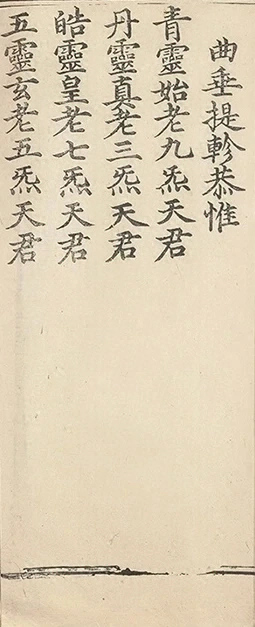 曲垂提軫恭惟
青靈始老九炁天君
丹靈真老三炁天君
皓靈皇老七炁天君
五靈玄老五炁天君